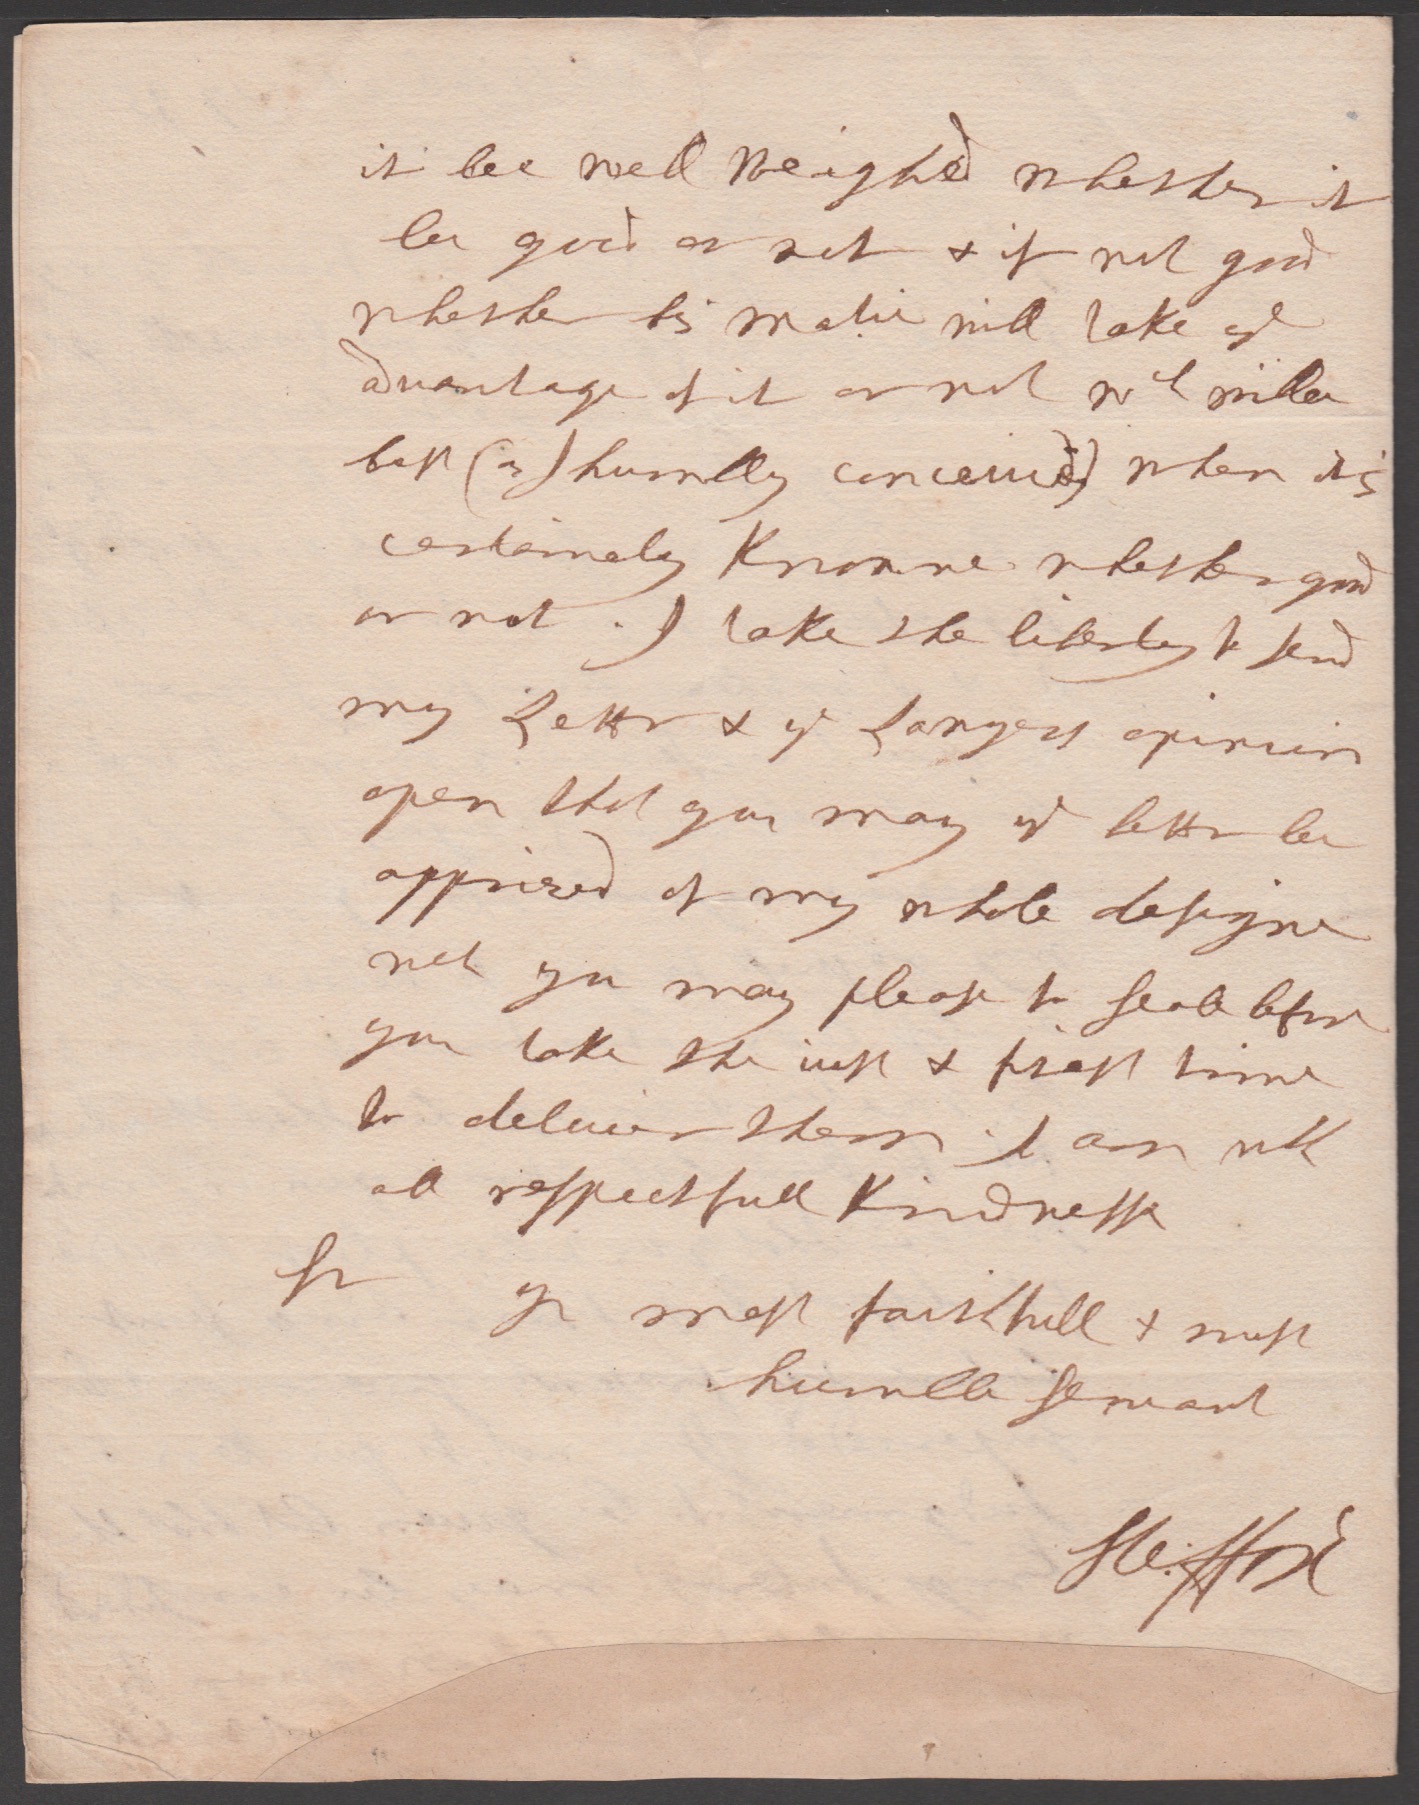 it bee well weighed whether it
be good or not & if not good
whether his Matie will take ye
advantage of it or not wch will be
best (as humbly conceiued) when it is
certainely Knowne whether good
or not. I take the liberty to send
my Letter & ye Lawyers opinion
open that you may ye better be
apprised of my whole designe
wch you may please to seale before
you take the iust & first time
to deliuer them. I am wth
all respectfull Kindnesse
Sr
yr most faithfull & most
humble seruant
Ste: ffox